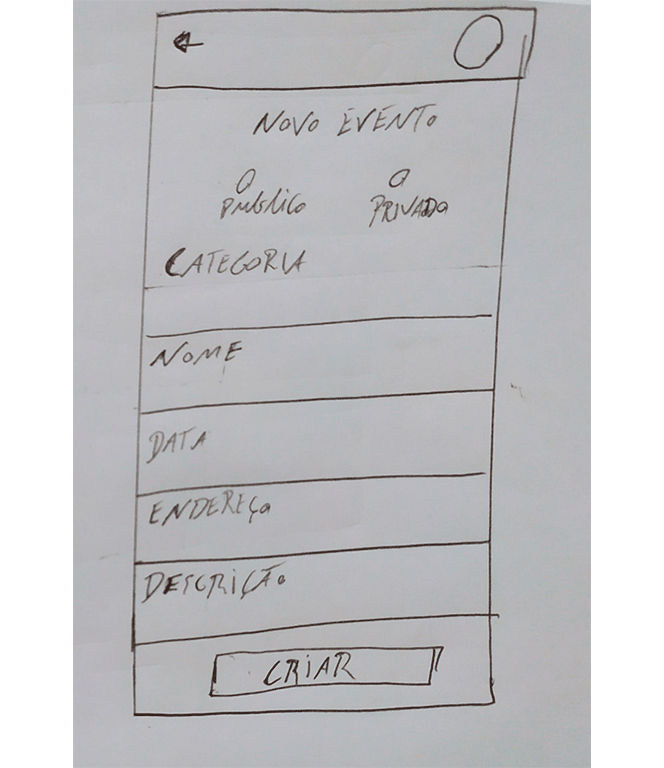 NOVO EVENTO
PÚBLICO PRIVADO
CATEGORIA
NOME
DATA
ENDEREÇO
DESCRIÇÃO
CRIAR